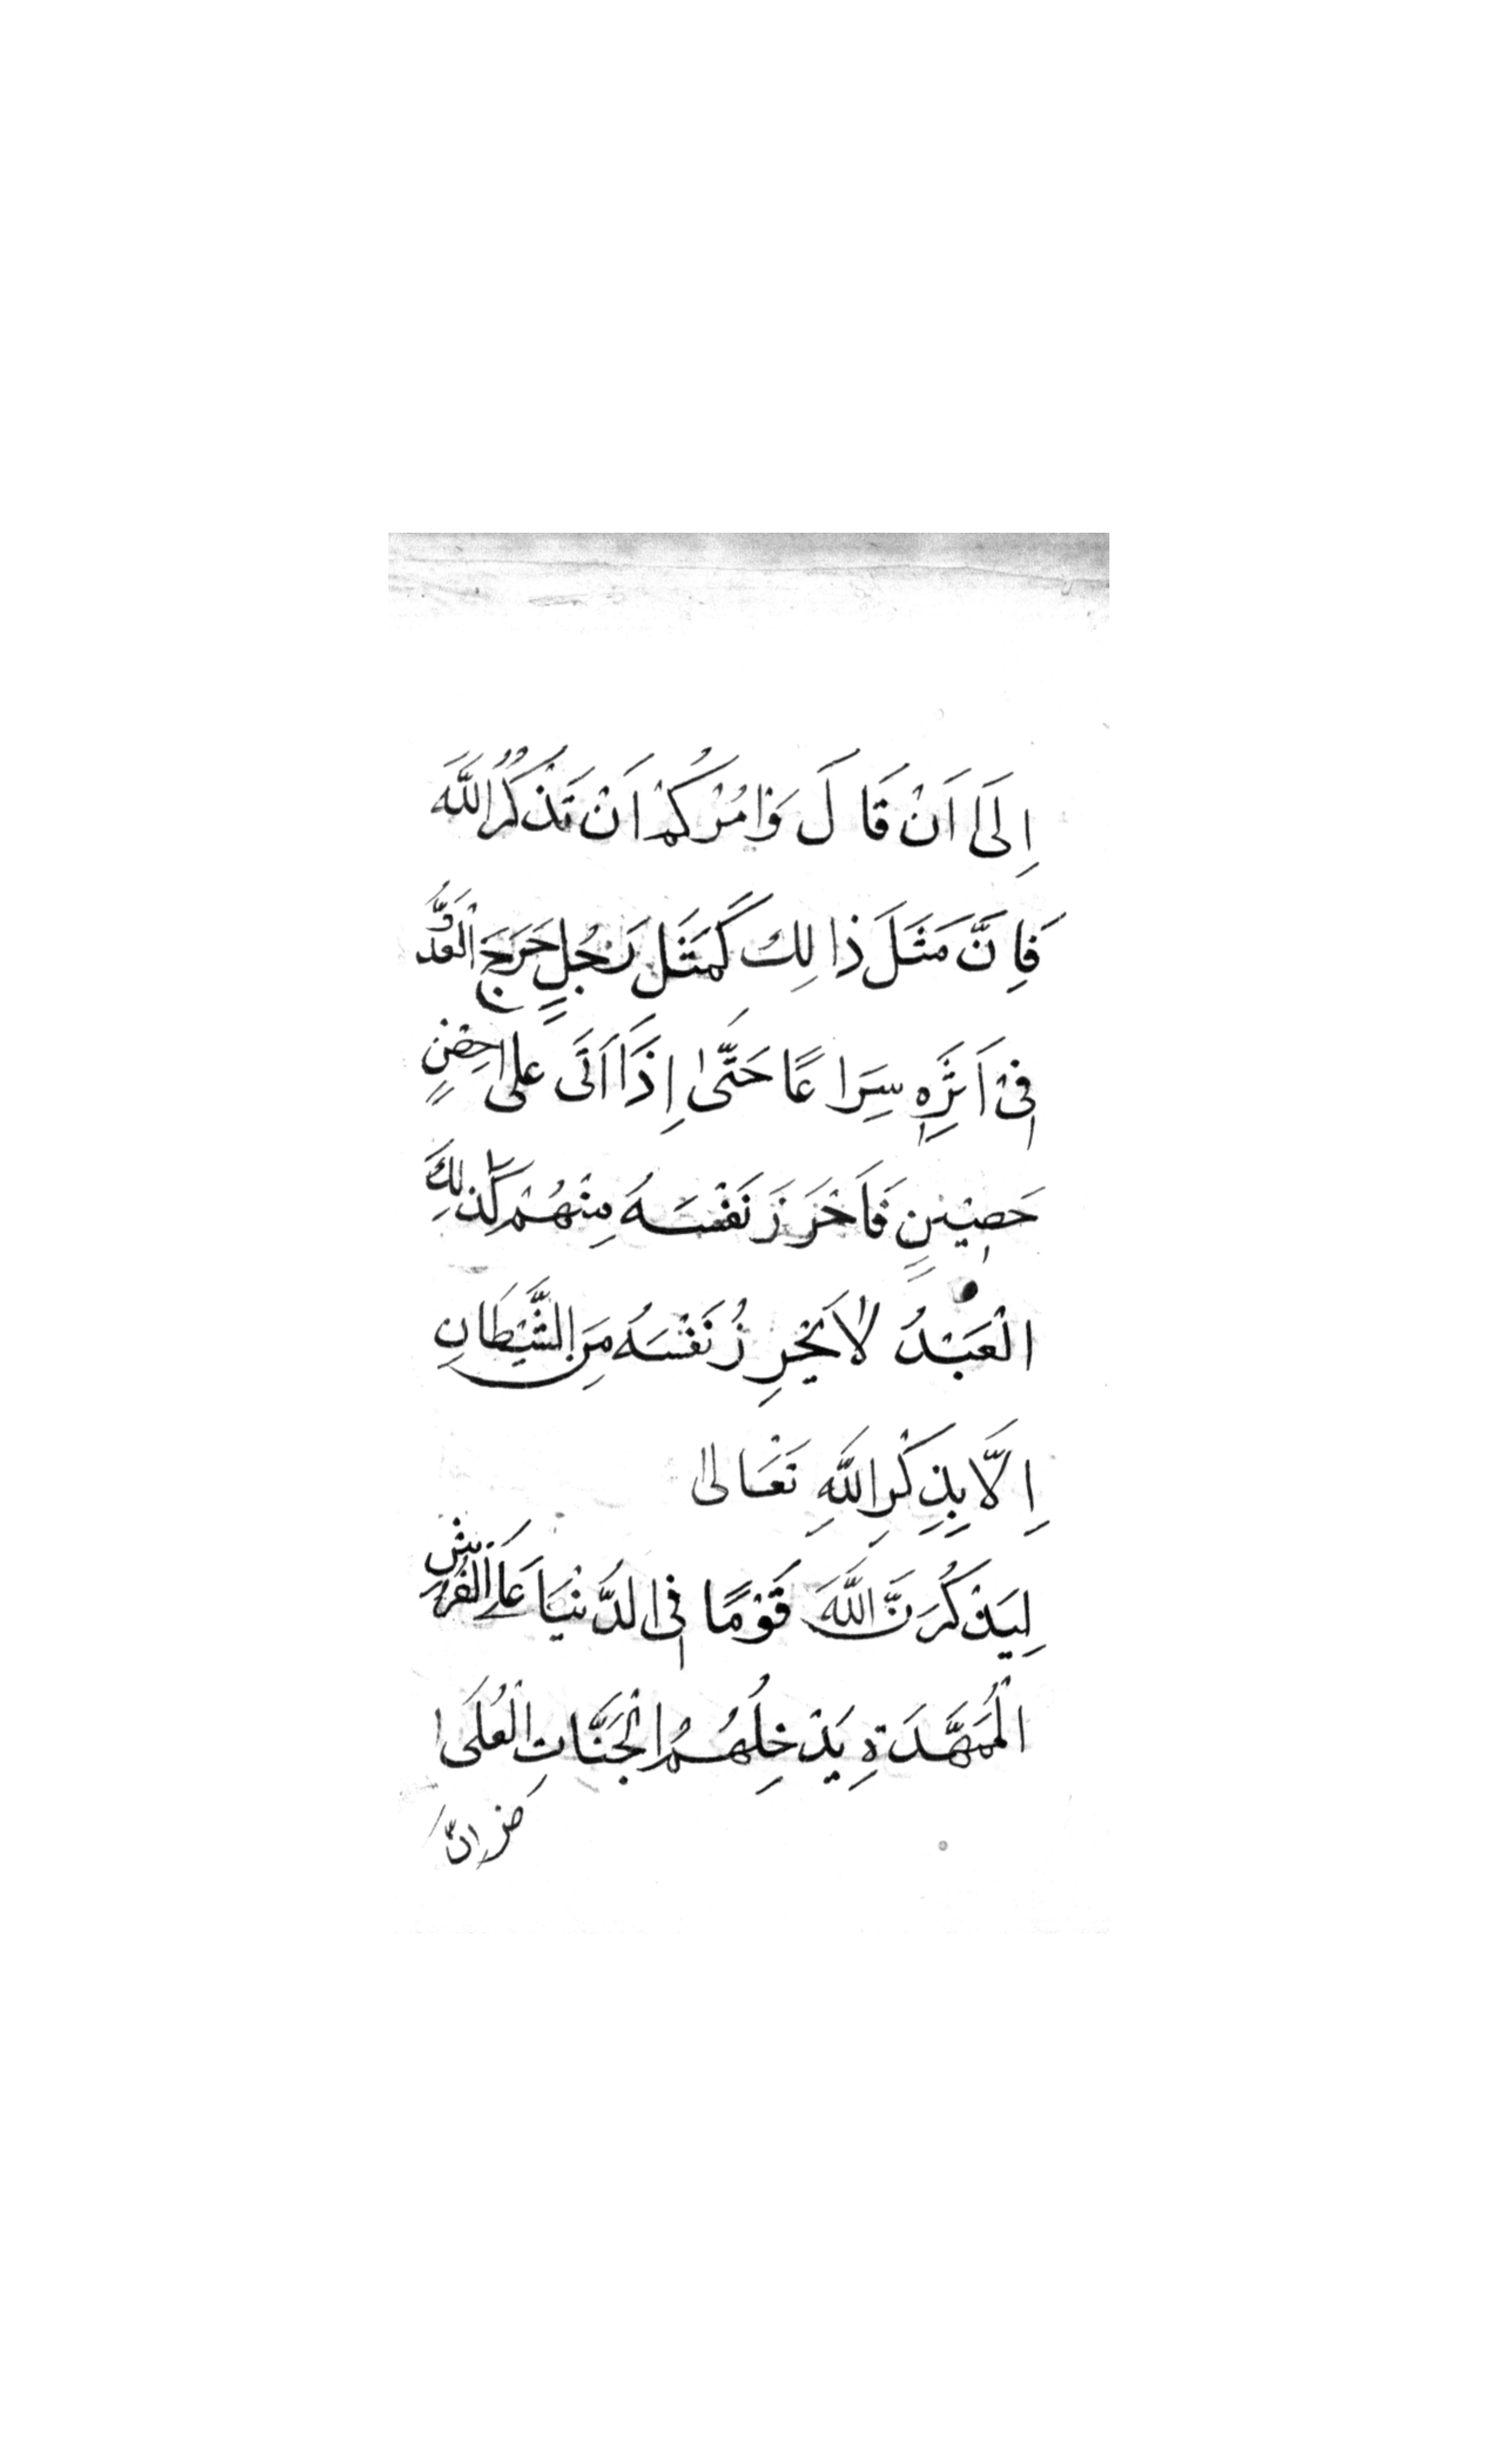 اِلَىٰ اَنْ قَالَ وَاٰمُرْكُمْ اَنْ تَذْكُرُ اللّٰهَ
فَاِنَّ مَثَلَ ذَالِكَ كَمَثَلِ رَجُلٍ خَرَجَ الْعَدُوُّ
فِىْ اَثَرِهٖ سِرَاعًا حَتّٰى اِذَا اَتَى عَلٰى حِصْنٍ
حَصِيْنٍ فَاَحْرَزَ نَفْسَهُ مِنْهُمْ كَذٰلِكَ
الْعَبْدُ لَا يَحْرِزُ نَفْسَهُ مِنَ الشَّيْطَانِ
اِلَّا بِذِكْرِ اللّٰهِ تَعَالٰى
لِيَذْكُرَنَّ اللّٰهَ قَوْمًا فِى الدُّنْيَا عَلَى الْفُرُشِ
الْمُمَهَّدَةِ يَدْخِلُهُمُ الْجَنَّاتِ الْعُلَىٰ
اِنَّ